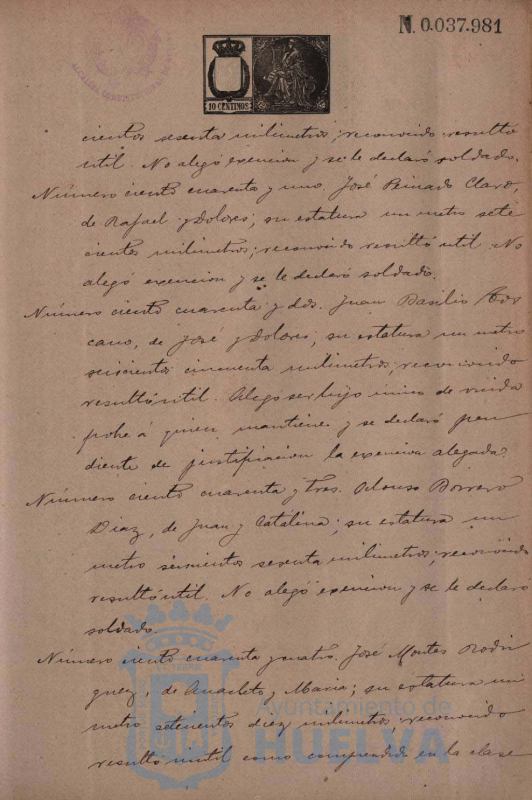 N. 0.037.981
10 CENTIMOS
cientos sesenta milimetros; reconocido resultó
util. No alegó exencion y se le declaró soldado.
Número ciento cuarenta y uno. José Peinado Claro,
de Rafael y Dolores; su estatura un metro sete
cientos milimetros; reconocido resultó util. No
alegó exencion y se le declaró soldado.
Número ciento cuarenta y dos. Juan Basilio
cano, de José y Dolores; su estatura un metro
seiscientos cincuenta milimetros; reconocido
resultó util. Alegó ser hijo único de viuda
pobre á quien mantiene y se declaró pen
diente de justificacion la exencion alegada.
Número ciento cuarenta y tres. Alonso Borrero
Diaz, de Juan y Catalina; su estatura un
metro seiscientos sesenta milimetros; reconocido
resultó util. No alegó exencion y se le declaró
soldado.
Número ciento cuarenta y cuatro. José Montes Rodri
guez, de Anacleto y Maria; su estatura un
metro setecientos diez milimetros; reconocido
resultó inutil como comprendido en la clase
Ayuntamiento de
HUELVA